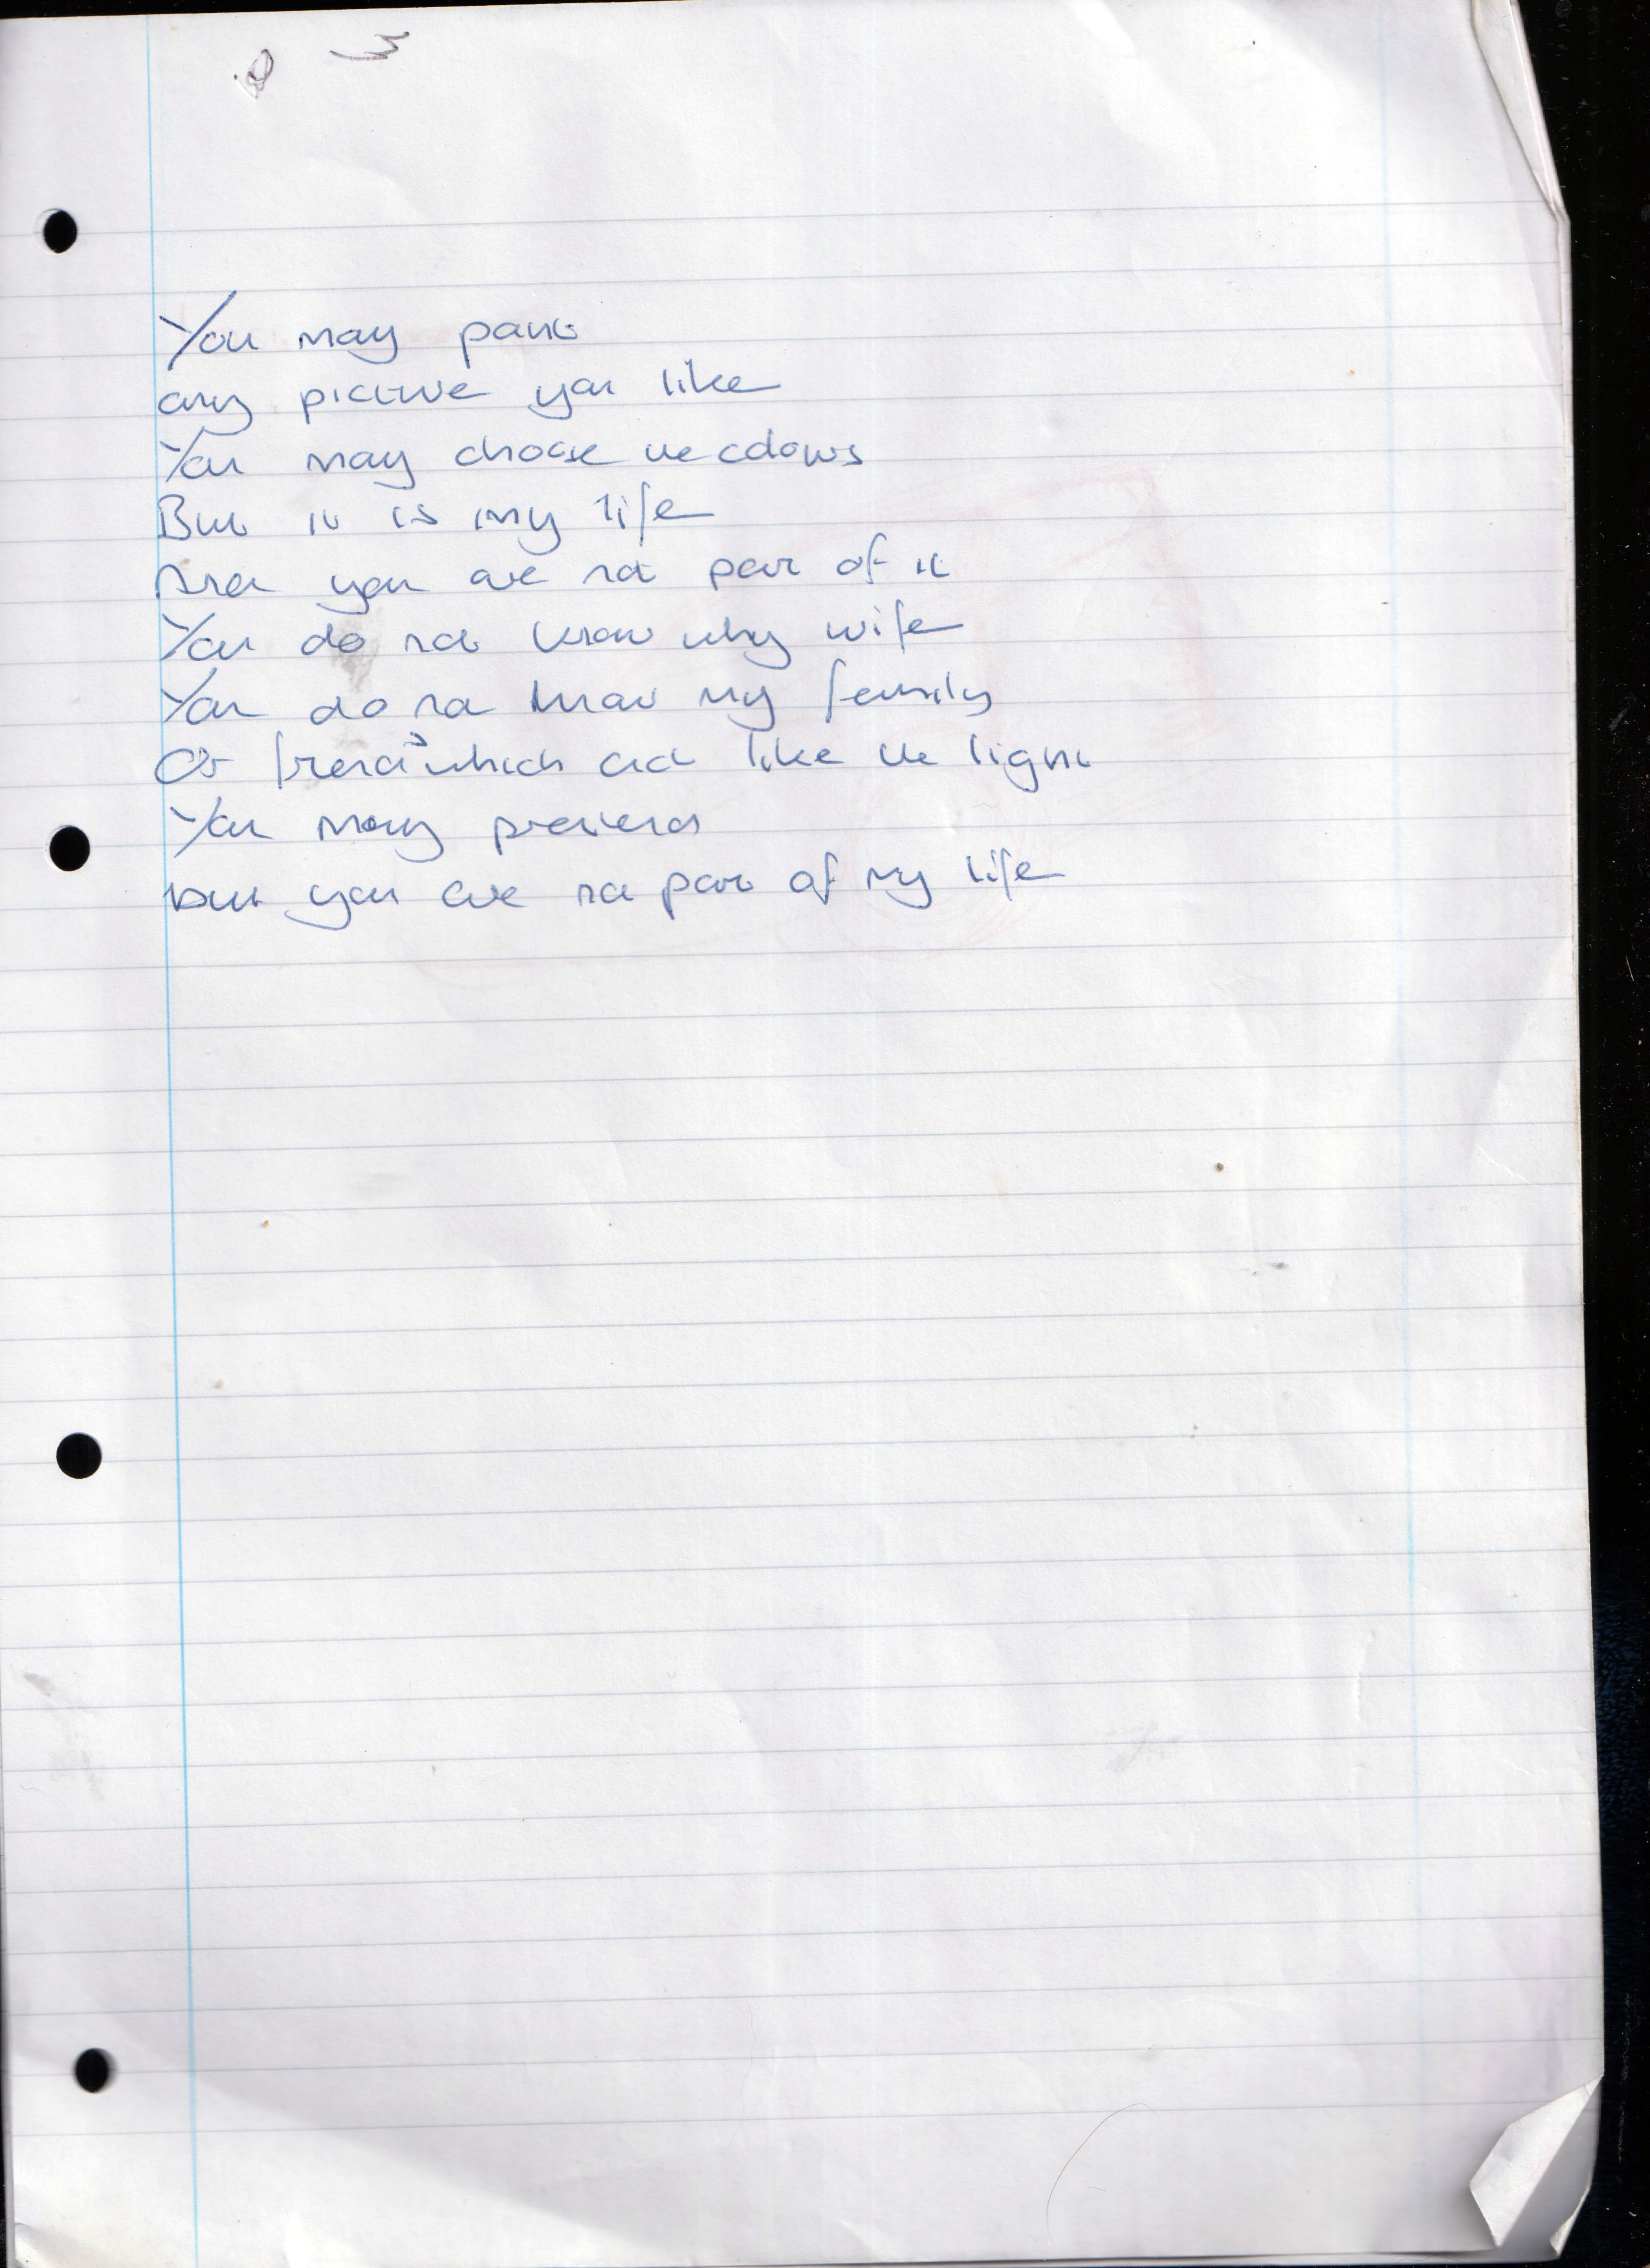 You may paint
any picture you like
You may choose the colours
But it is my life
And you are not part of it
You do not know why wife
You do not know my family
Or friend which act like the light
You may pretend
but you are not part of my life